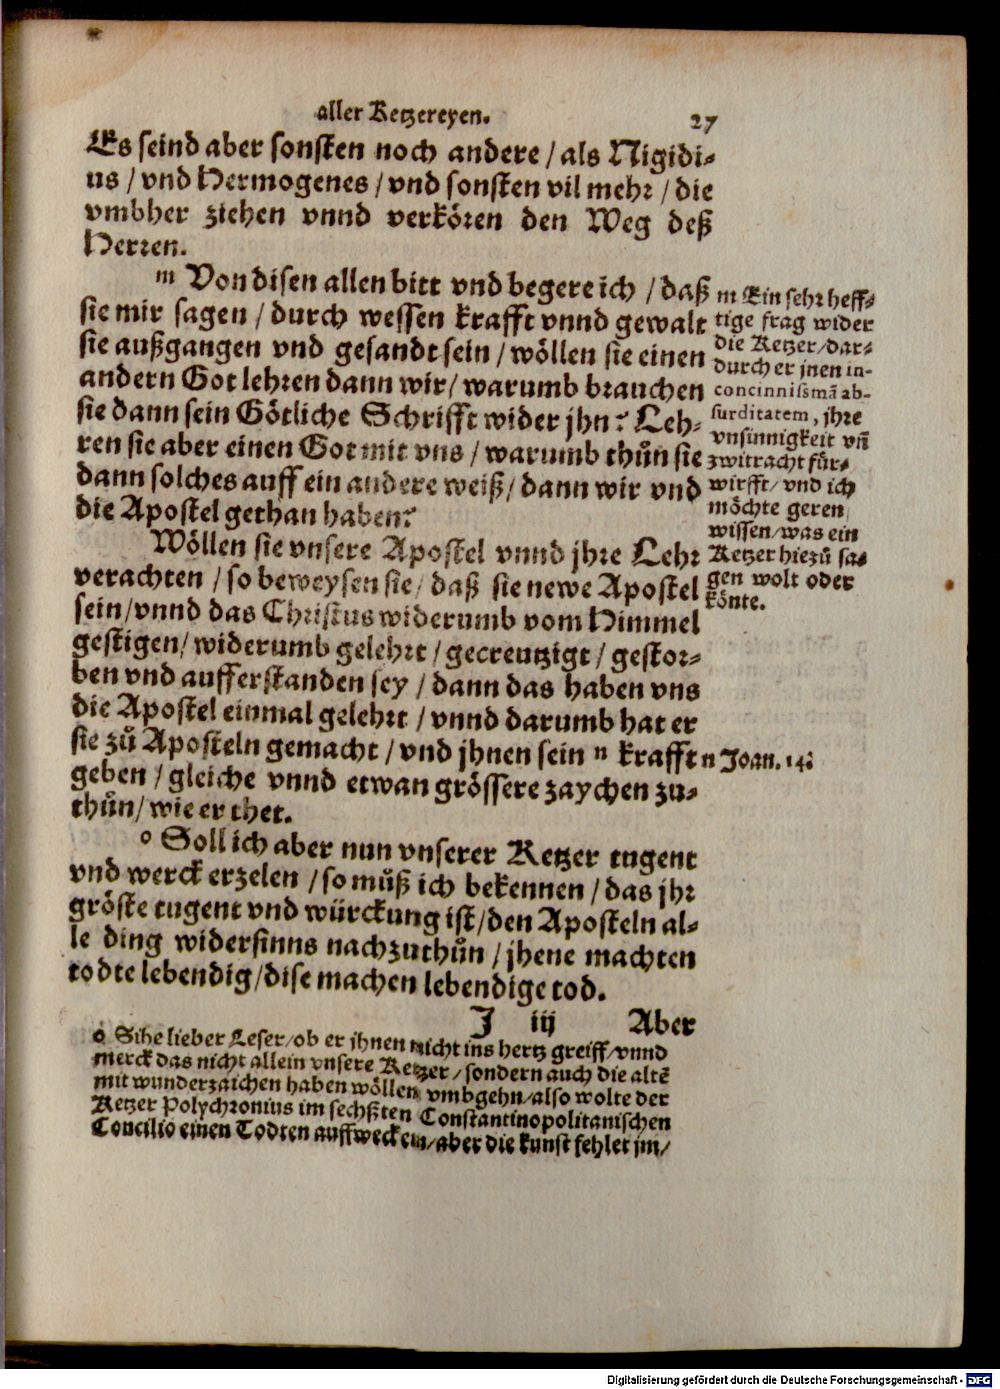 aller Ketzereyen. 27
Es seind aber sonsten noch andere / als Nigidi-
us / vnd Hermogenes / vnd sonsten vil mehr / die
vmbher ziehen vnnd verkören den Weg deß
Herren.
m Von disen allen bitt vnd begere ich / daß
sie mir sagen / durch wessen krafft vnnd gewalt
sie außgangen vnd gesandt sein / wöllen sie einen
andern Got lehren dann wir / warumb brauchen
sie dann sein Götliche Schrifft wider jhn? Leh-
ren sie aber einen Got mit vns / warumb thůn sie
dann solches auff ein andere weiß / dann wir vnd
die Apostel gethan haben?
Wöllen sie vnsere Apostel vnnd jhre Lehr
verachten / so beweysen sie / daß sie newe Apostel
sein / vnnd das Christus widerumb vom Himmel
gestigen / widerumb gelehrt / gecreutzigt / gestor-
ben vnd aufferstanden sey / dann das haben vns
die Apostel einmal gelehrt / vnnd darumb hat er
sie zů Aposteln gemacht / vnd jhnen sein n krafft
geben / gleiche vnnd etwan grössere zaychen zu-
thůn / wie er thet.
o Soll ich aber nun vnserer Ketzer tugent
vnd werck erzelen / so můß ich bekennen / das jhr
gröste tugent vnd würckung ist / den Aposteln al-
le ding widersinns nachzuthůn / jhene machten
todte lebendig / dise machen lebendige tod.
J iij Aber
m Ein sehr heff-
tige frag wider
die Ketzer / dar-
durch er jnen in-
concinnissmã ab-
surditatem, ihre
vnsinnigkeit vñ
zwitracht für-
wirfft / vnd ich
möchte geren
wissen / was ein
Ketzer hiezů sa-
gen wolt oder
könte.
n Joan. 14.
o Sihe lieber Leser / ob er jhnen nicht ins hertz greiff / vnnd
merck das nicht allein vnsere Ketzer / sondern auch die altẽ
mit wunderzaichen haben wöllen vmbgehn / also wolte der
Ketzer Polychronius im sechßten Constantinopolitanischen
Concilio einen Todten auffwecken / aber die kunst fehlet jm /
Digitalisierung gefördert durch die Deutsche Forschungsgemeinschaft - DFG